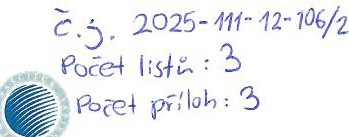 č.j. 2025-111-12-106/2
Počet listů: 3
Počet příloh: 3